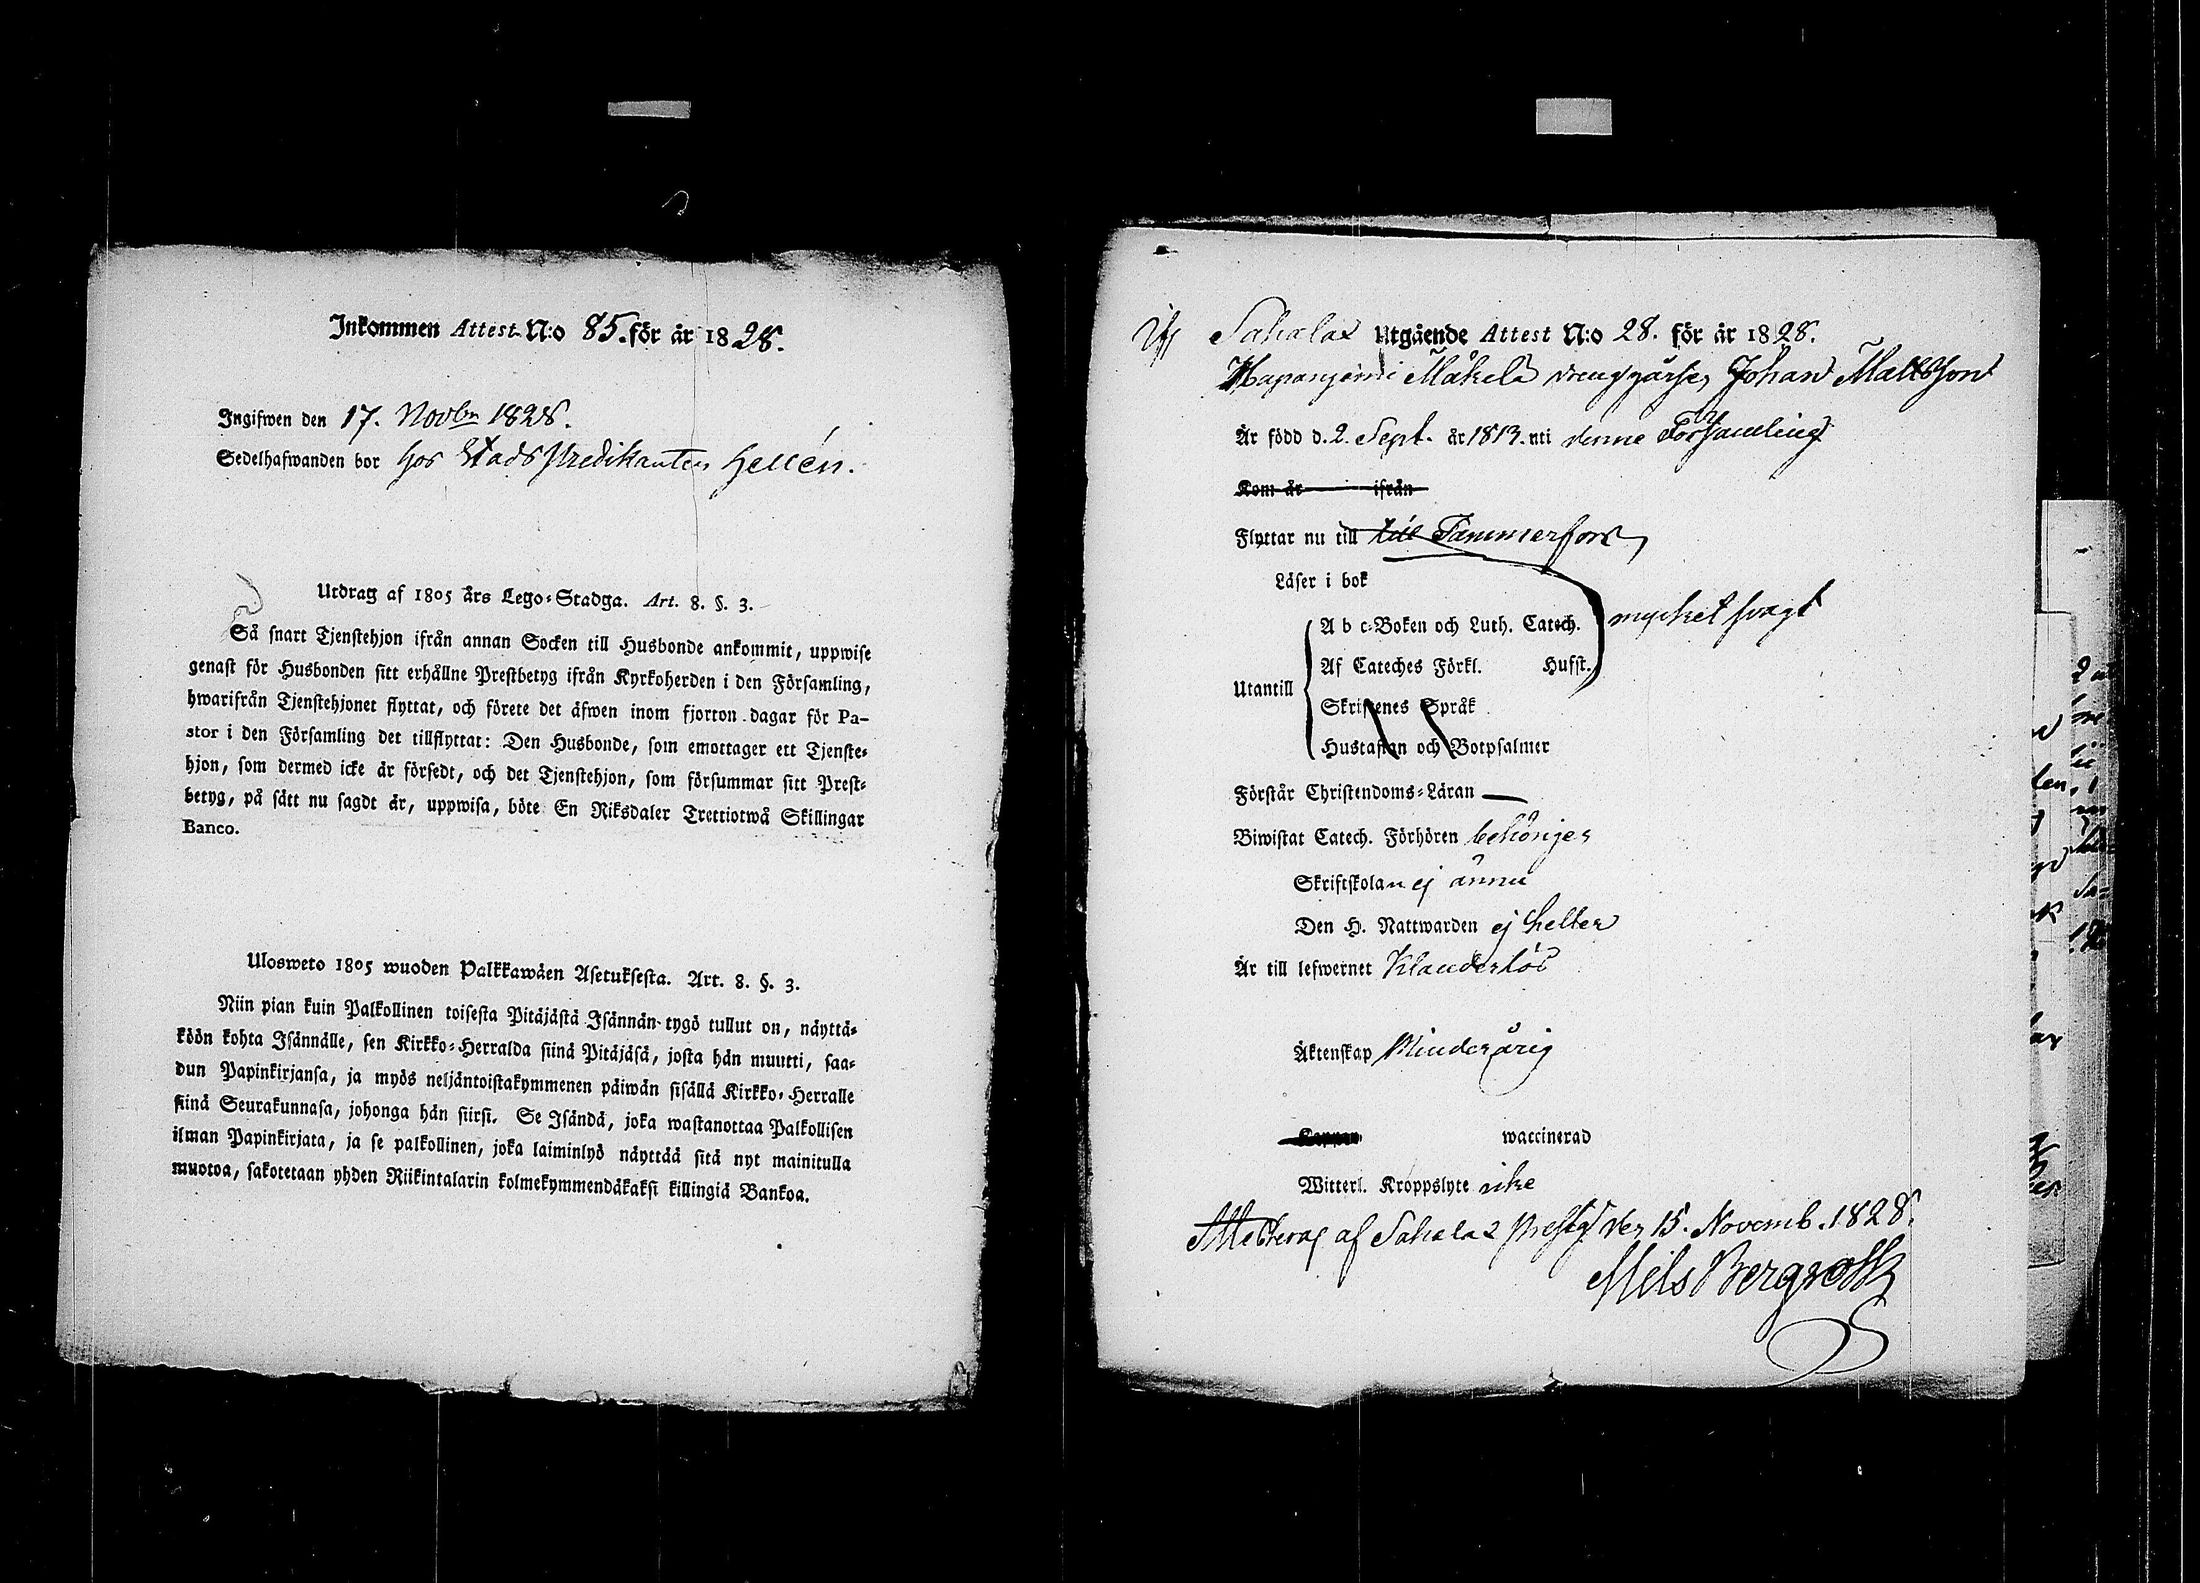 Inkommen Attest N:o 85. för år 1828.
Ingifwen den 17. Novbr 1828.
Sedelhafwanden bor hos StadsPredikanten Hellén.
Utdrag af 1805 års Lego-Stadga. Art. 8. §. 3.
Så snart Tjenstehjon ifrån annan Socken till Husbonde ankommit, uppwise
genast för Husbonden sitt erhållne Prestbetyg ifrån Kyrkoherden i den Församling,
hwarifrån Tjenstehjonet flyttat, och förete det äfwen inom fjorton dagar för Pa-
stor i den Församling det tillflyttat: Den Husbonde, som emottager ett Tjenste-
hjon, som dermed icke är försedt, och det Tjenstehjon, som försummar sitt Prest-
betyg, på sätt nu sagdt är, uppwisa, böte En Riksdaler Trettiotwå Skillingar
Banco.
Ulosweto 1805 wuoden Palkkawäen Asetuksesta. Art. 8. §. 3.
Niin pian kuin Palkollinen toisesta Pitäjästä Isännän tygö tullut on, näyttä-
köön kohta Isännälle, sen Kirkko-Herralda siinä Pitäjäsä, josta hän muutti, saa-
dun Papinkirjansa, ja myös neljäntoistakymmenen päiwän sisällä Kirkko-Herralle
siinä Seurakunnasa, johonga hän siirsi. Se Isändä, joka wastanottaa Palkollisen
ilman Papinkirjata, ja se palkollinen, joka laiminlyö näyttää sitä nyt mainitulla
muotoa, sakotetaan yhden Riikintalarin kolmekymmendäkaksi killingiä Bankoa.
Sahalax Utgående Attest N:o 28. för år 1828.
Haapaniemi Mäkelä drenggåsse, Johan Mattsson
Är född d. 2. Sept. år 1813. uti denne Församling
Kom år ifrån
Flyttar nu till till Tammerfors,
Läser i bok
A b c-Boken och Luth. Catech. mycket svagt
Af Cateches Förkl. Husst.
Utantill
Skriftenes Språk
Hustaflan och Botpsalmer
Förstår Christendoms-Läran —
Biwistat Catech. Förhören behörigen
Skriftskolan ej ännu
Den H. Nattwarden ej heller
Är till lefwernet Klanderlös
Äktenskap Minderårig
Koppor waccinerad
Witterl. Kroppslyte icke
Attesteras af Sahalax Prestgd den 15. Novemb. 1828.
Nils Bergroth